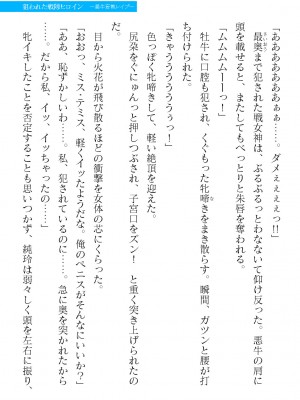 狙われた戦隊ヒロイン
「あああああああぁぁ……。ダメぇぇぇぇっ!!」
最奥まで犯された戦女神は、ぶるぶるっとわなないて仰け反った。悪牛の肩に
頭を載せると、またしてもべっとりと朱唇を奪われる。
「ムムムムーーっ!」
牡牛に口腔も犯され、くぐもった牝啼きをまき散らす。瞬間、ガツンと腰が打
ち付けられた。
「きゃうううううぅぅっ!」
色っぽく牝啼きして、軽い絶頂を迎えた。
尻朶をぐにゅんっと押しつぶされ、子宮口をズン! と重く突き上げられたの
だ。
目から火花が飛び散るほどの衝撃を女体の芯にくらった。
「おおっ、ミス・テミス、軽くイッたようだな。俺のペニスがそんなにいいか?」
「ああ、恥ずかしいわ……。私、犯されているのに……。急に奥を突かれたから
……。だから私、イッ、イッちゃったの……」
牝イキしたことを否定することも思いつかず、純玲は弱々しく頭を左右に振り、